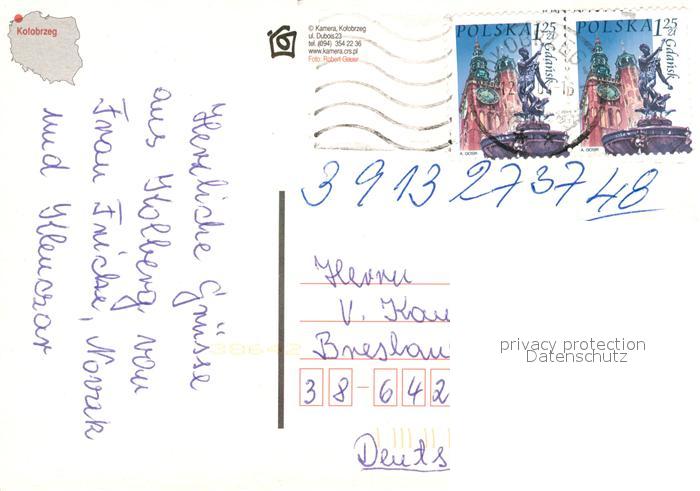 Kołobrzeg
© Kamera, Kołobrzeg
ul. Dubois 23
tel. (094) 354 22 36
www.kamera.crs.pl
Foto: Robert Gauer
POLSKA 1,25 zł
Gdańsk
A. GOSIK
POLSKA 1,25 zł
Gdańsk
A. GOSIK
Herzliche Grüsse
aus Kolberg von
Frau Fricke, Novak
und Klenczar
3 9 13 27 37 48
Herrn
V. Kau
Breslau
38-642
Deuts
38642
privacy protection
Datenschutz